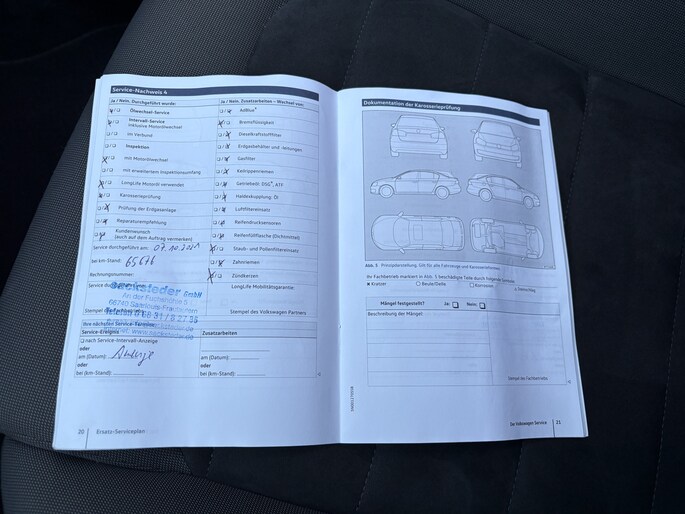 Service-Nachweis 4
Ja / Nein, Durchgeführt wurde:
Ölwechsel-Service
Intervall-Service
inklusive Motorölwechsel
im Verbund
Inspektion
mit Motorölwechsel
mit erweitertem Inspektionsumfang
LongLife Motoröl verwendet
Karosserieprüfung
Prüfung der Erdgasanlage
Reparaturempfehlung
Kundenwunsch
(auch auf dem Auftrag vermerken)
Service durchgeführt am: 07.10.2021
bei km-Stand: 65676
Rechnungsnummer:
Service du
Sacksteder GmbH
66740 Saarlouis-Fraulautern
Stempel des
Ihre nächsten Service-Termine
Service-Ereignis
nach Service-Intervall-Anzeige
oder
am (Datum): Anzeige
oder
bei (km-Stand):
20 Ersatz-Serviceplan
Ja / Nein, Zusatzarbeiten – Wechsel von:
AdBlue®
Bremsflüssigkeit
Dieselkraftstofffilter
Erdgasbehälter und -leitungen
Gasfilter
Keilrippenriemen
Getriebeöl: DSG®, ATF
Haldexkupplung: Öl
Luftfiltereinsatz
Reifendrucksensoren
Reifenfüllflasche (Dichtmittel)
Staub- und Pollenfiltereinsatz
Zahnriemen
Zündkerzen
LongLife Mobilitätsgarantie:
Stempel des Volkswagen Partners
Zusatzarbeiten
am (Datum):
oder
bei (km-Stand):
Dokumentation der Karosserieprüfung
Abb. 5 Prinzipdarstellung. Gilt für alle Fahrzeuge und Karosserieformen.
Ihr Fachbetrieb markiert in Abb. 5 beschädigte Teile durch folgende Symbole:
Kratzer Beule/Delle Korrosion Steinschlag
Mängel festgestellt? Ja: Nein:
Beschreibung der Mängel:
Stempel des Fachbetriebs
Der Volkswagen Service 21